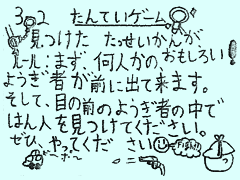 3 2 たんていゲーム
見つけた たっせいかんが
おもしろい!
ルール:まず、何人かの
ようぎ者が前に出て来ます。
そして、目の前のようぎ者の中で
はん人を見つけてください。
ぜひ、やってくだ さい